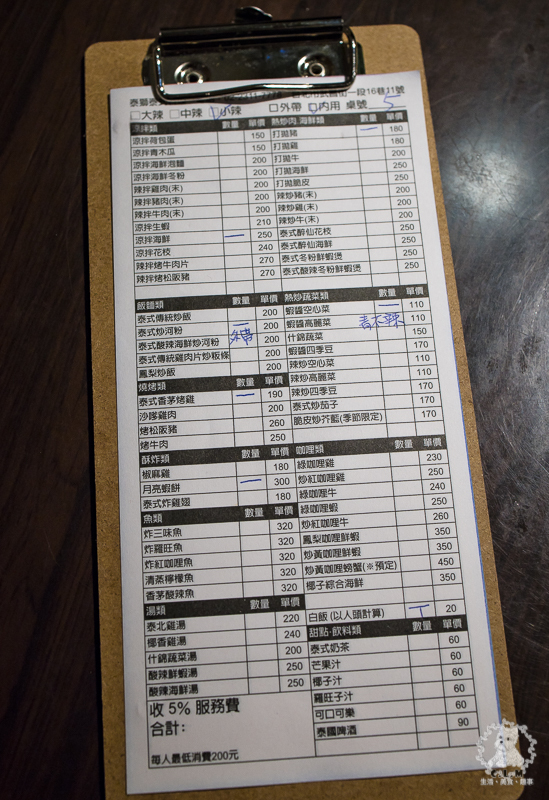 泰獅泰 一段16巷11號
□大辣 □中辣 □小辣 □外帶 □內用 桌號 5
涼拌類 數量 單價
涼拌荷包蛋 150
涼拌青木瓜 150
涼拌海鮮泡麵 200
涼拌海鮮冬粉 200
辣拌雞肉(末) 200
辣拌豬肉(末) 200
辣拌牛肉(末) 200
涼拌生蝦 210
涼拌海鮮 一 250
涼拌花枝 240
辣拌烤牛肉片 270
辣拌烤松阪豬 270
熱炒肉.海鮮類 數量 單價
打拋豬 一 180
打拋雞 180
打拋牛 200
打拋海鮮 250
打拋脆皮 250
辣炒豬(末) 200
辣炒雞(末) 200
辣炒牛(末) 200
泰式醉仙花枝 250
泰式醉仙海鮮 250
泰式冬粉鮮蝦煲 250
泰式酸辣冬粉鮮蝦煲 250
飯麵類 數量 單價
泰式傳統炒飯 200
泰式炒河粉 一 200
泰式酸辣海鮮炒河粉 200
泰式傳統雞肉片炒粄條 200
鳳梨炒飯 200
熱炒蔬菜類 數量 單價
蝦醬空心菜 一 110
蝦醬高麗菜 110
什錦蔬菜 150
蝦醬四季豆 170
辣炒空心菜 110
辣炒高麗菜 110
辣炒四季豆 170
泰式炒茄子 170
脆皮炒芥藍(季節限定) 170
燒烤類 數量 單價
泰式香茅烤雞 一 190
沙嗲雞肉 200
烤松阪豬 260
烤牛肉 250
酥炸類 數量 單價
椒麻雞 180
月亮蝦餅 一 300
泰式炸雞翅 180
咖哩類 數量 單價
綠咖哩雞 230
炒紅咖哩雞 250
綠咖哩牛 240
綠咖哩蝦 250
炒紅咖哩牛 260
鳳梨咖哩鮮蝦 350
炒黃咖哩鮮蝦 350
炒黃咖哩螃蟹(※預定) 450
椰子綜合海鮮 350
魚類 數量 單價
炸三味魚 320
炸羅旺魚 320
炸紅咖哩魚 320
清蒸檸檬魚 320
香茅酸辣魚 320
湯類 數量 單價
泰北雞湯 220
椰香雞湯 240
什錦蔬菜湯 200
酸辣鮮蝦湯 250
酸辣海鮮湯 250
白飯 (以人頭計算) 20
甜點.飲料類 數量 單價
泰式奶茶 60
芒果汁 60
椰子汁 60
羅旺子汁 60
可口可樂 60
泰國啤酒 90
收 5% 服務費
合計:
每人最低消費200元
生活・美食・趣事